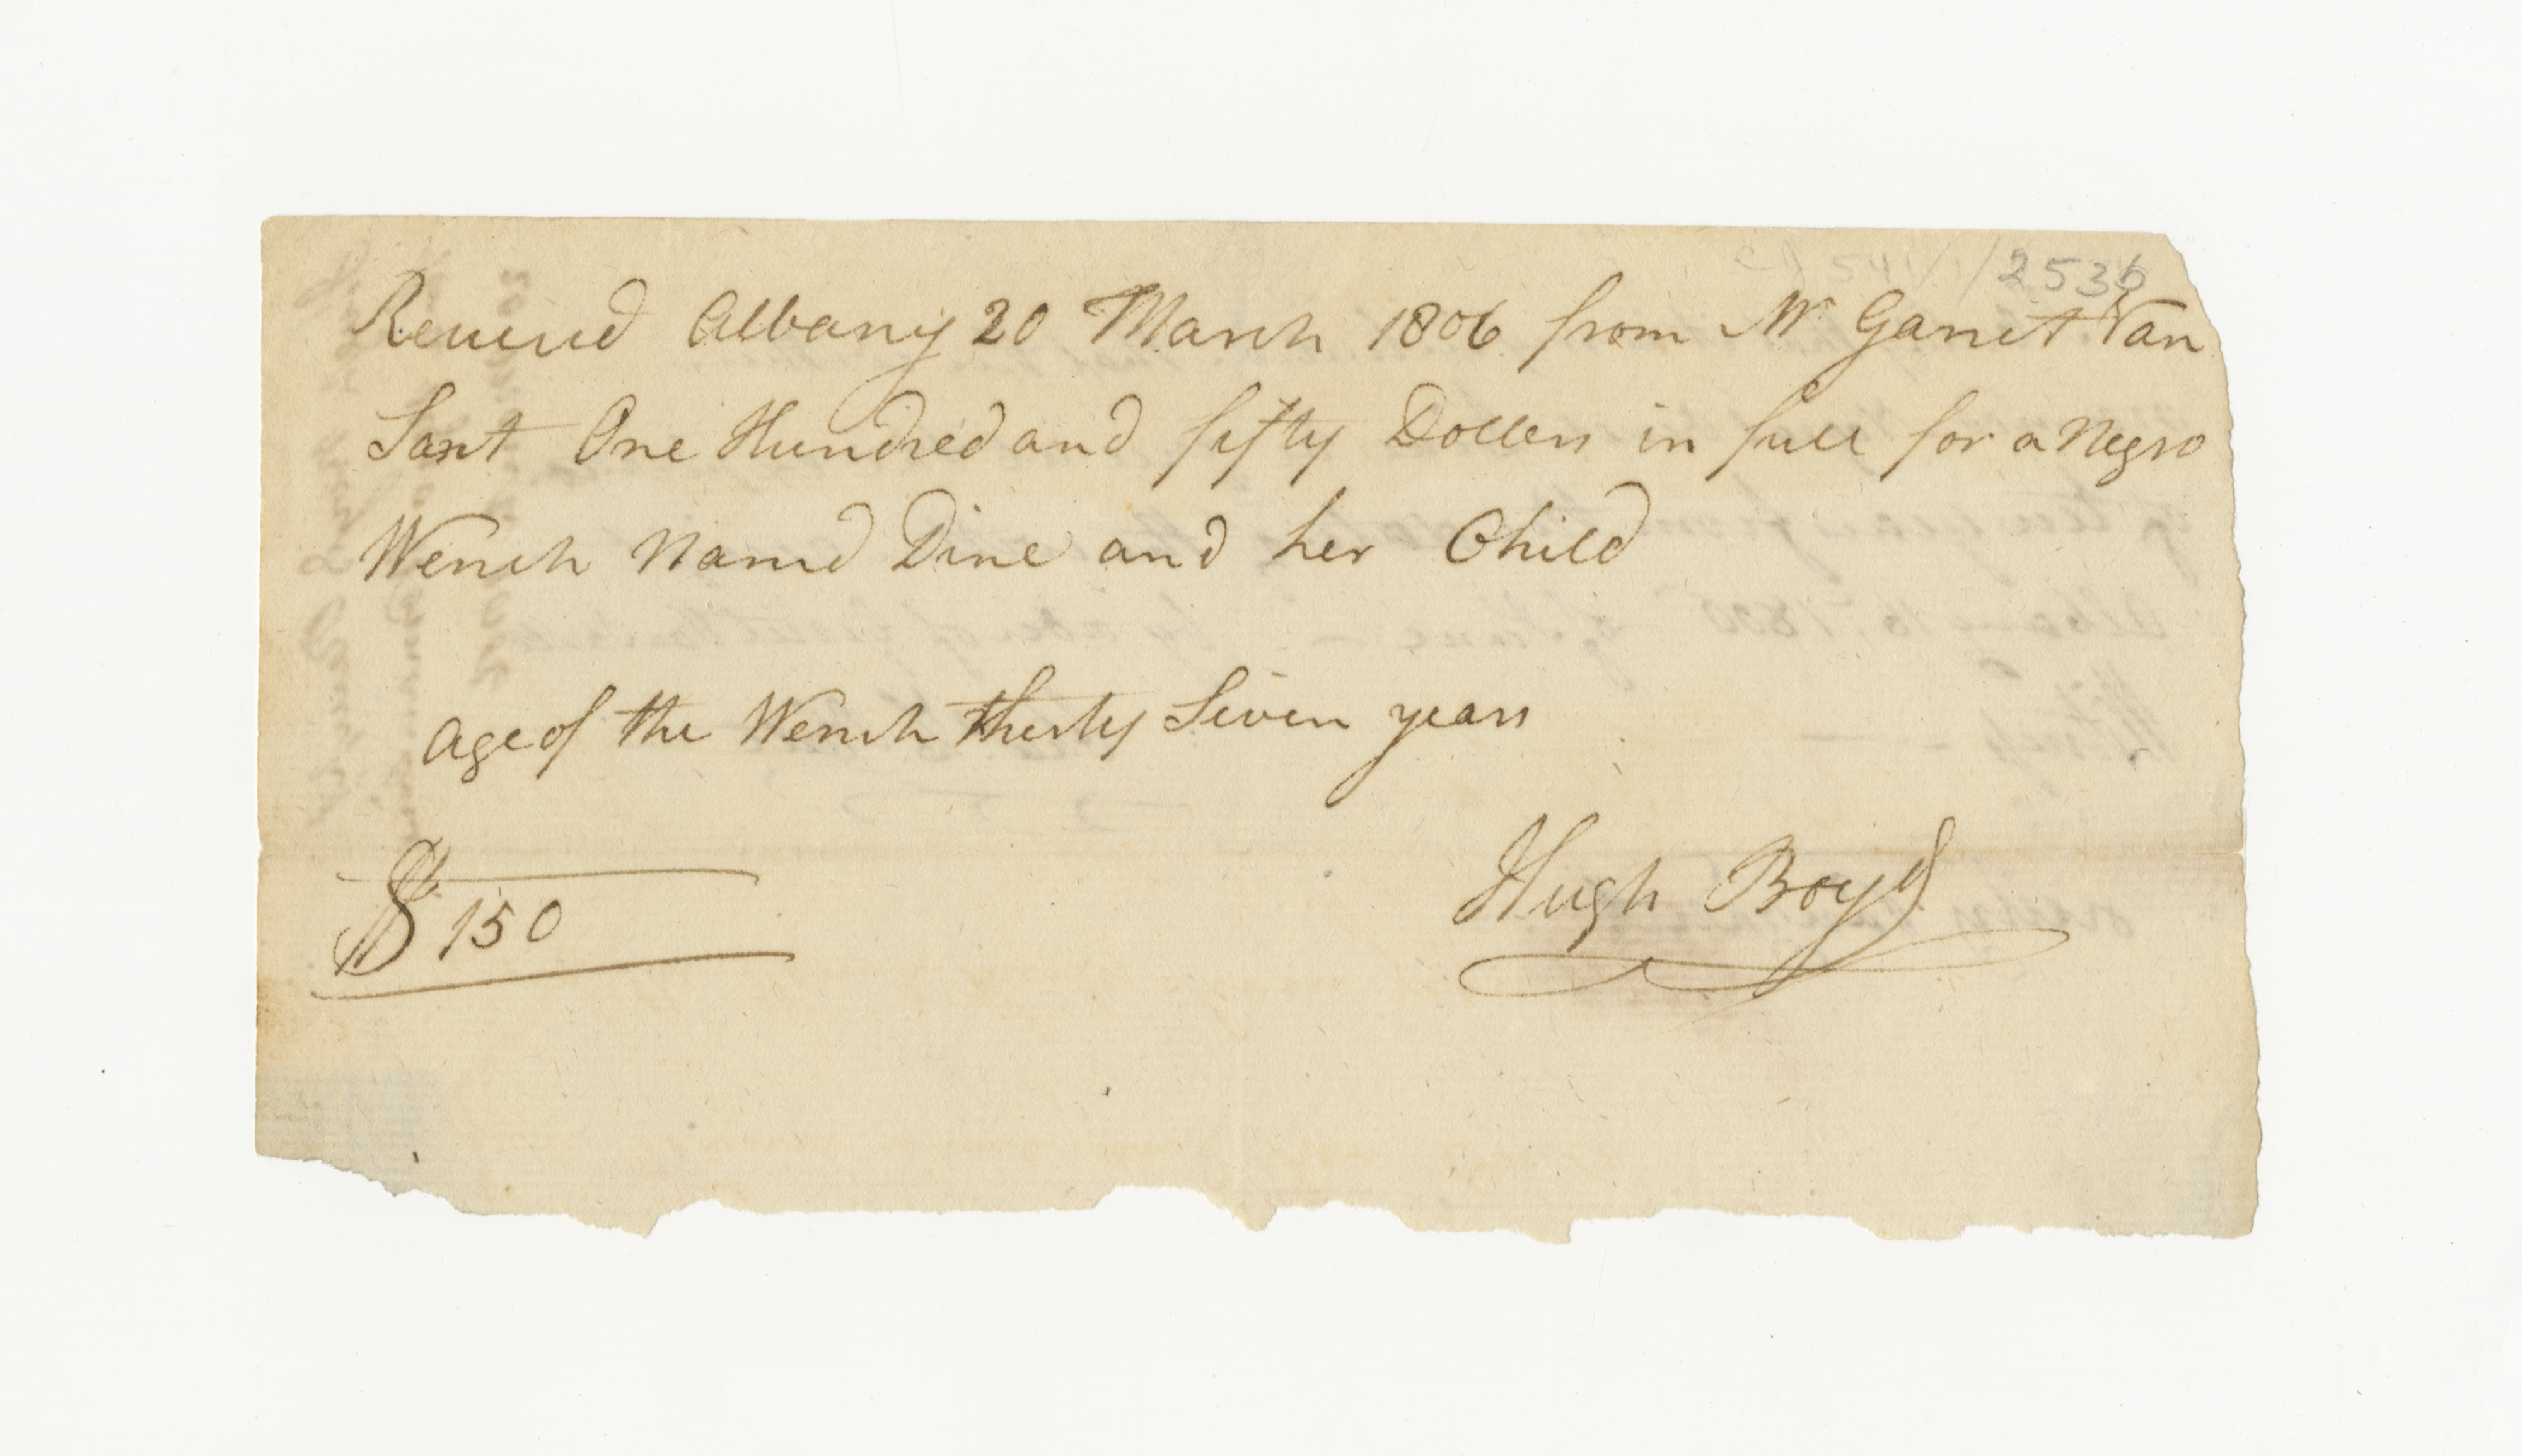 2536
Received Albany 20 March 1806 from Mr Garret Van
Sant One Hundred and fifty Dollers in full for a Negro
Wench Namd Dine and her Child
age of the Wench therty Seven years
$ 150
Hugh Boyd